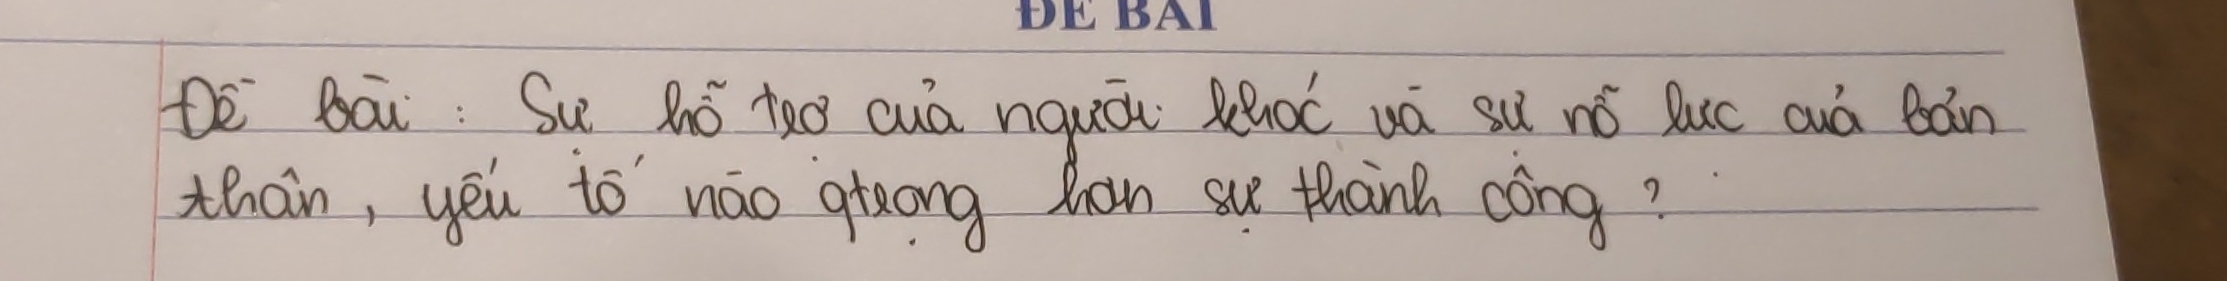 ĐỀ BÀI
Đề bài : Sự hỗ trợ của người khác và sự nỗ lực của bản
thân, yếu tố nào qtrọng hơn sự thành công ?